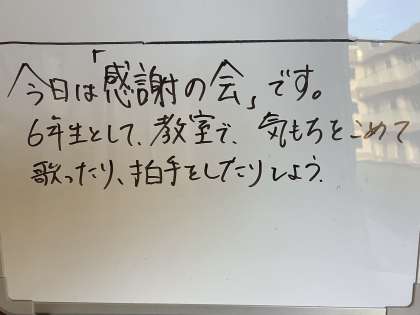 今日は「感謝の会」です。
6年生として、教室で、気もちをこめて
歌ったり、拍手をしたりしよう.